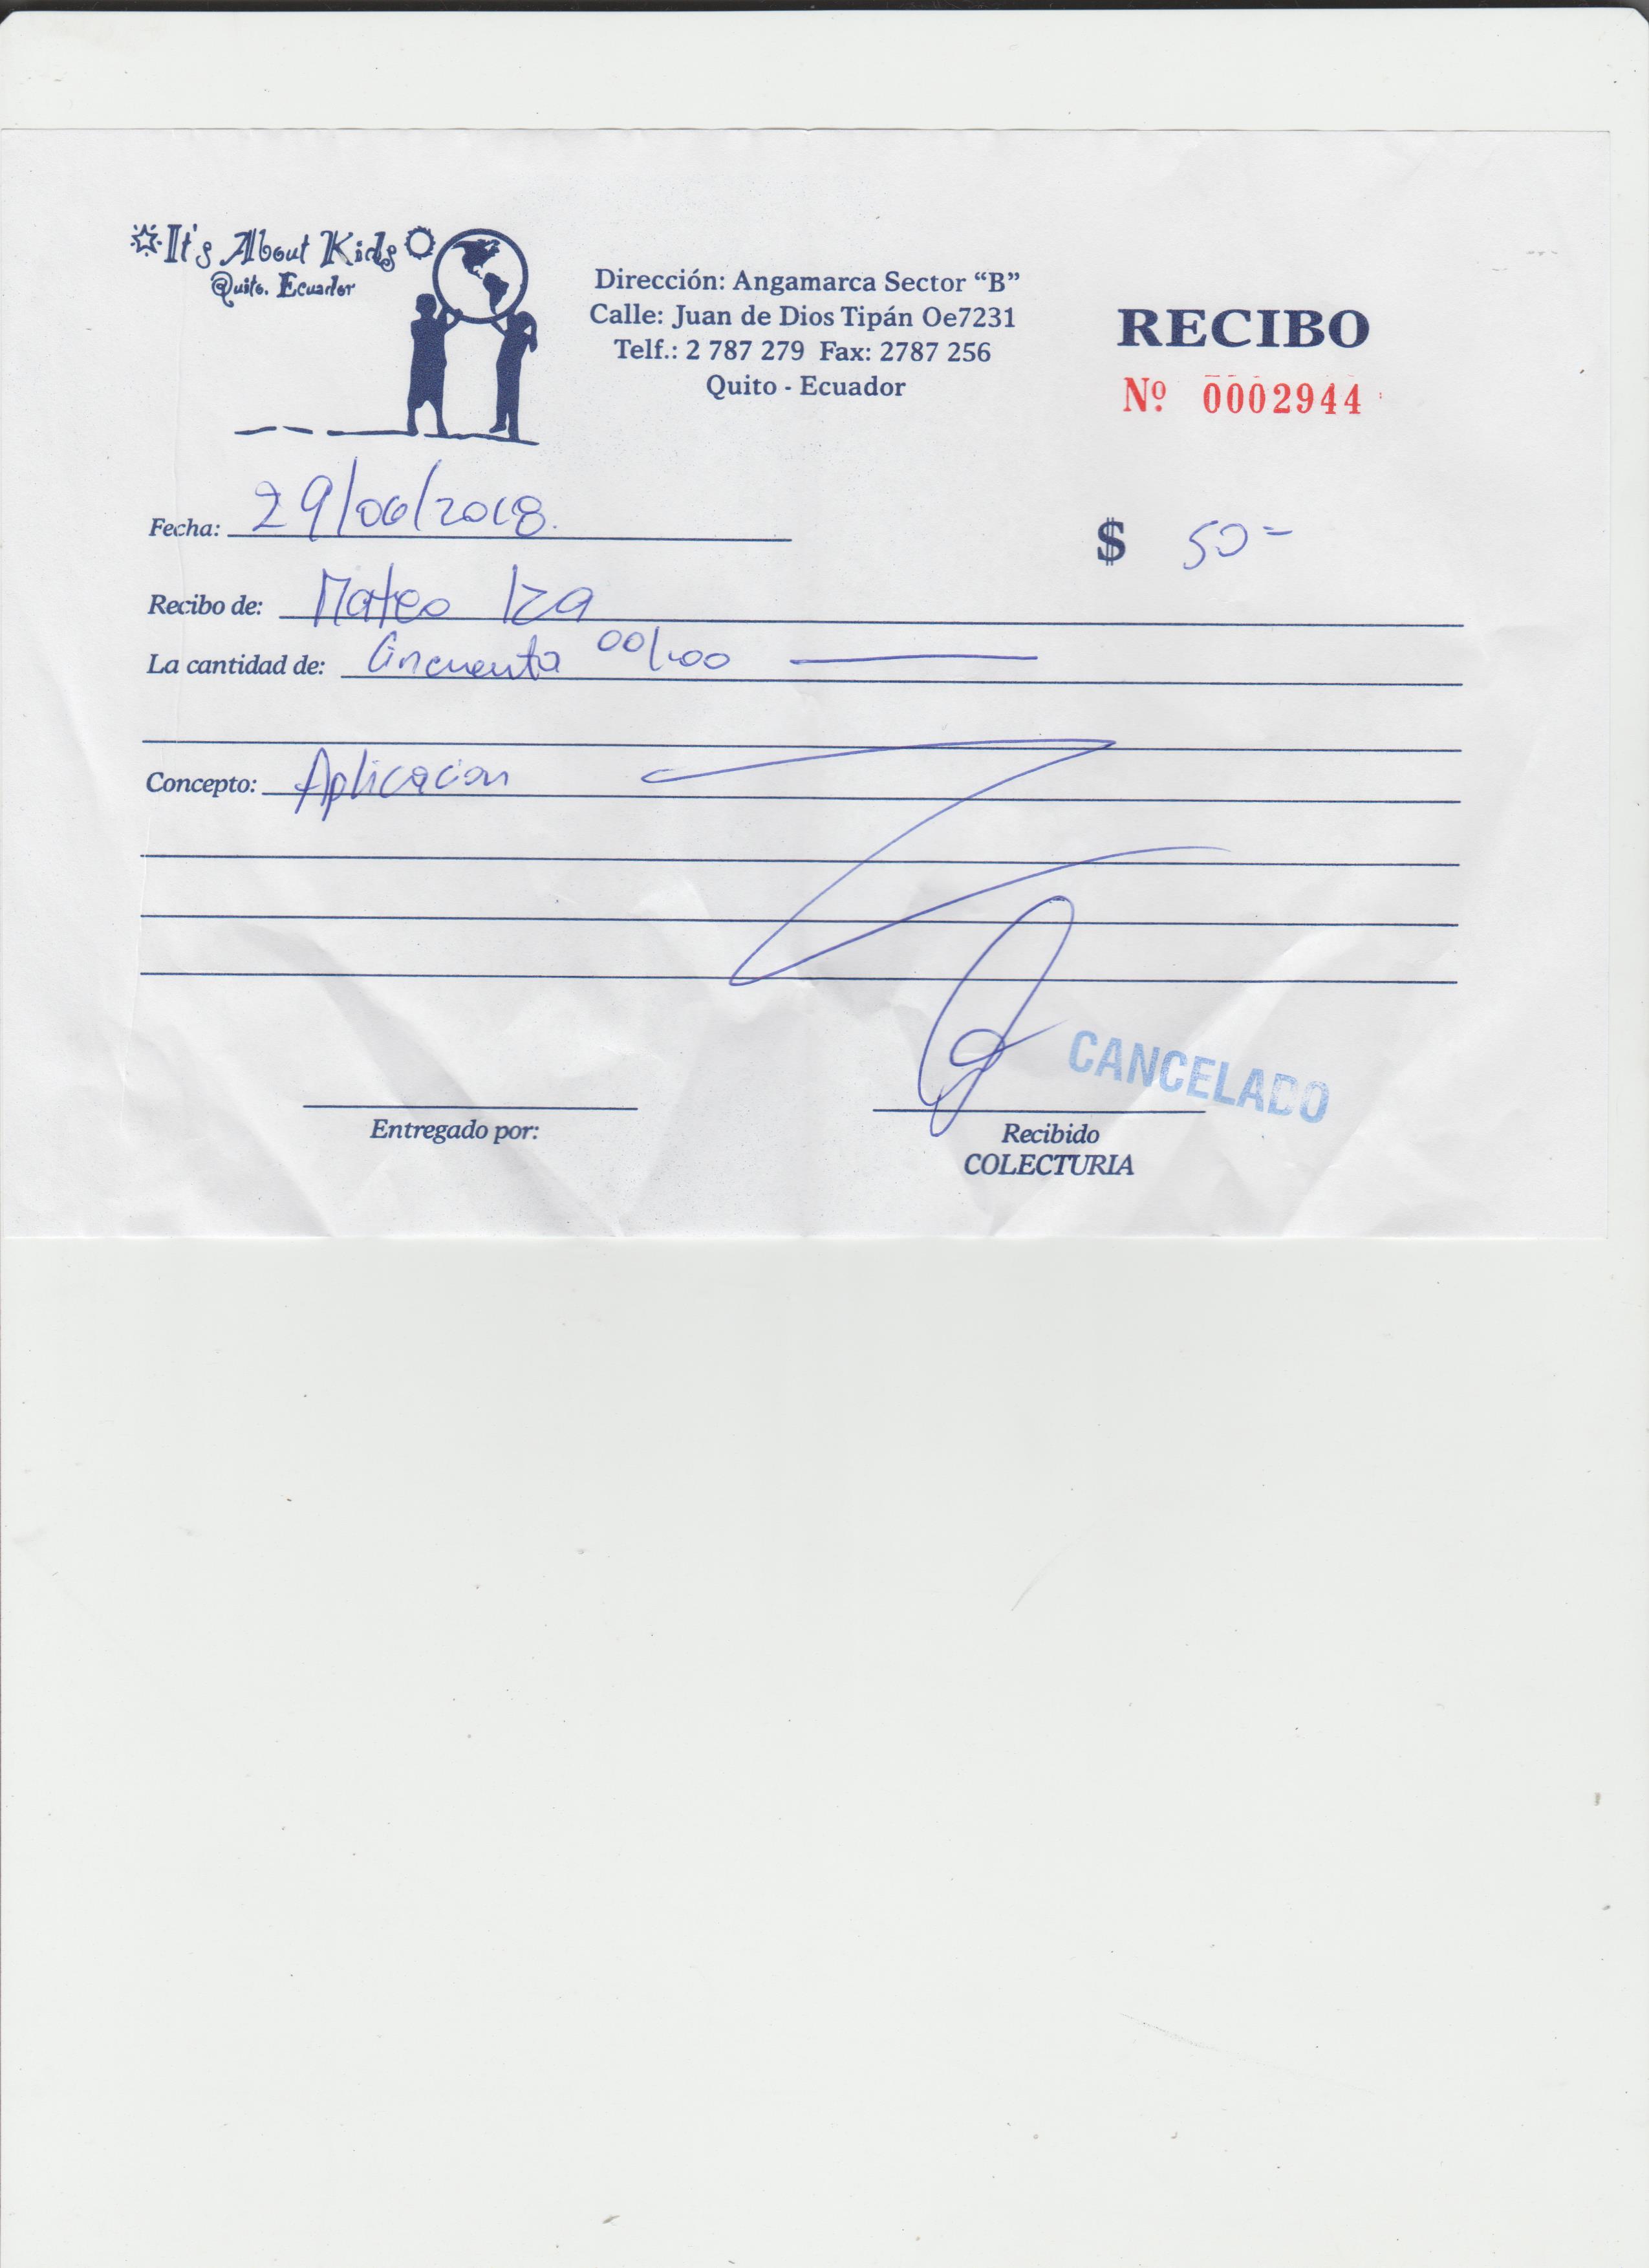 It's About Kids
Quito. Ecuador
Dirección: Angamarca Sector “B”
Calle: Juan de Dios Tipán Oe7231
Telf.: 2 787 279 Fax: 2787 256
Quito - Ecuador
RECIBO
Nº 0002944
Fecha: 29/06/2018.
$ 50=
Recibo de: Mateo Iza
La cantidad de: Cincuenta 00/100
Concepto: Aplicacion
CANCELADO
Entregado por:
Recibido
COLECTURIA